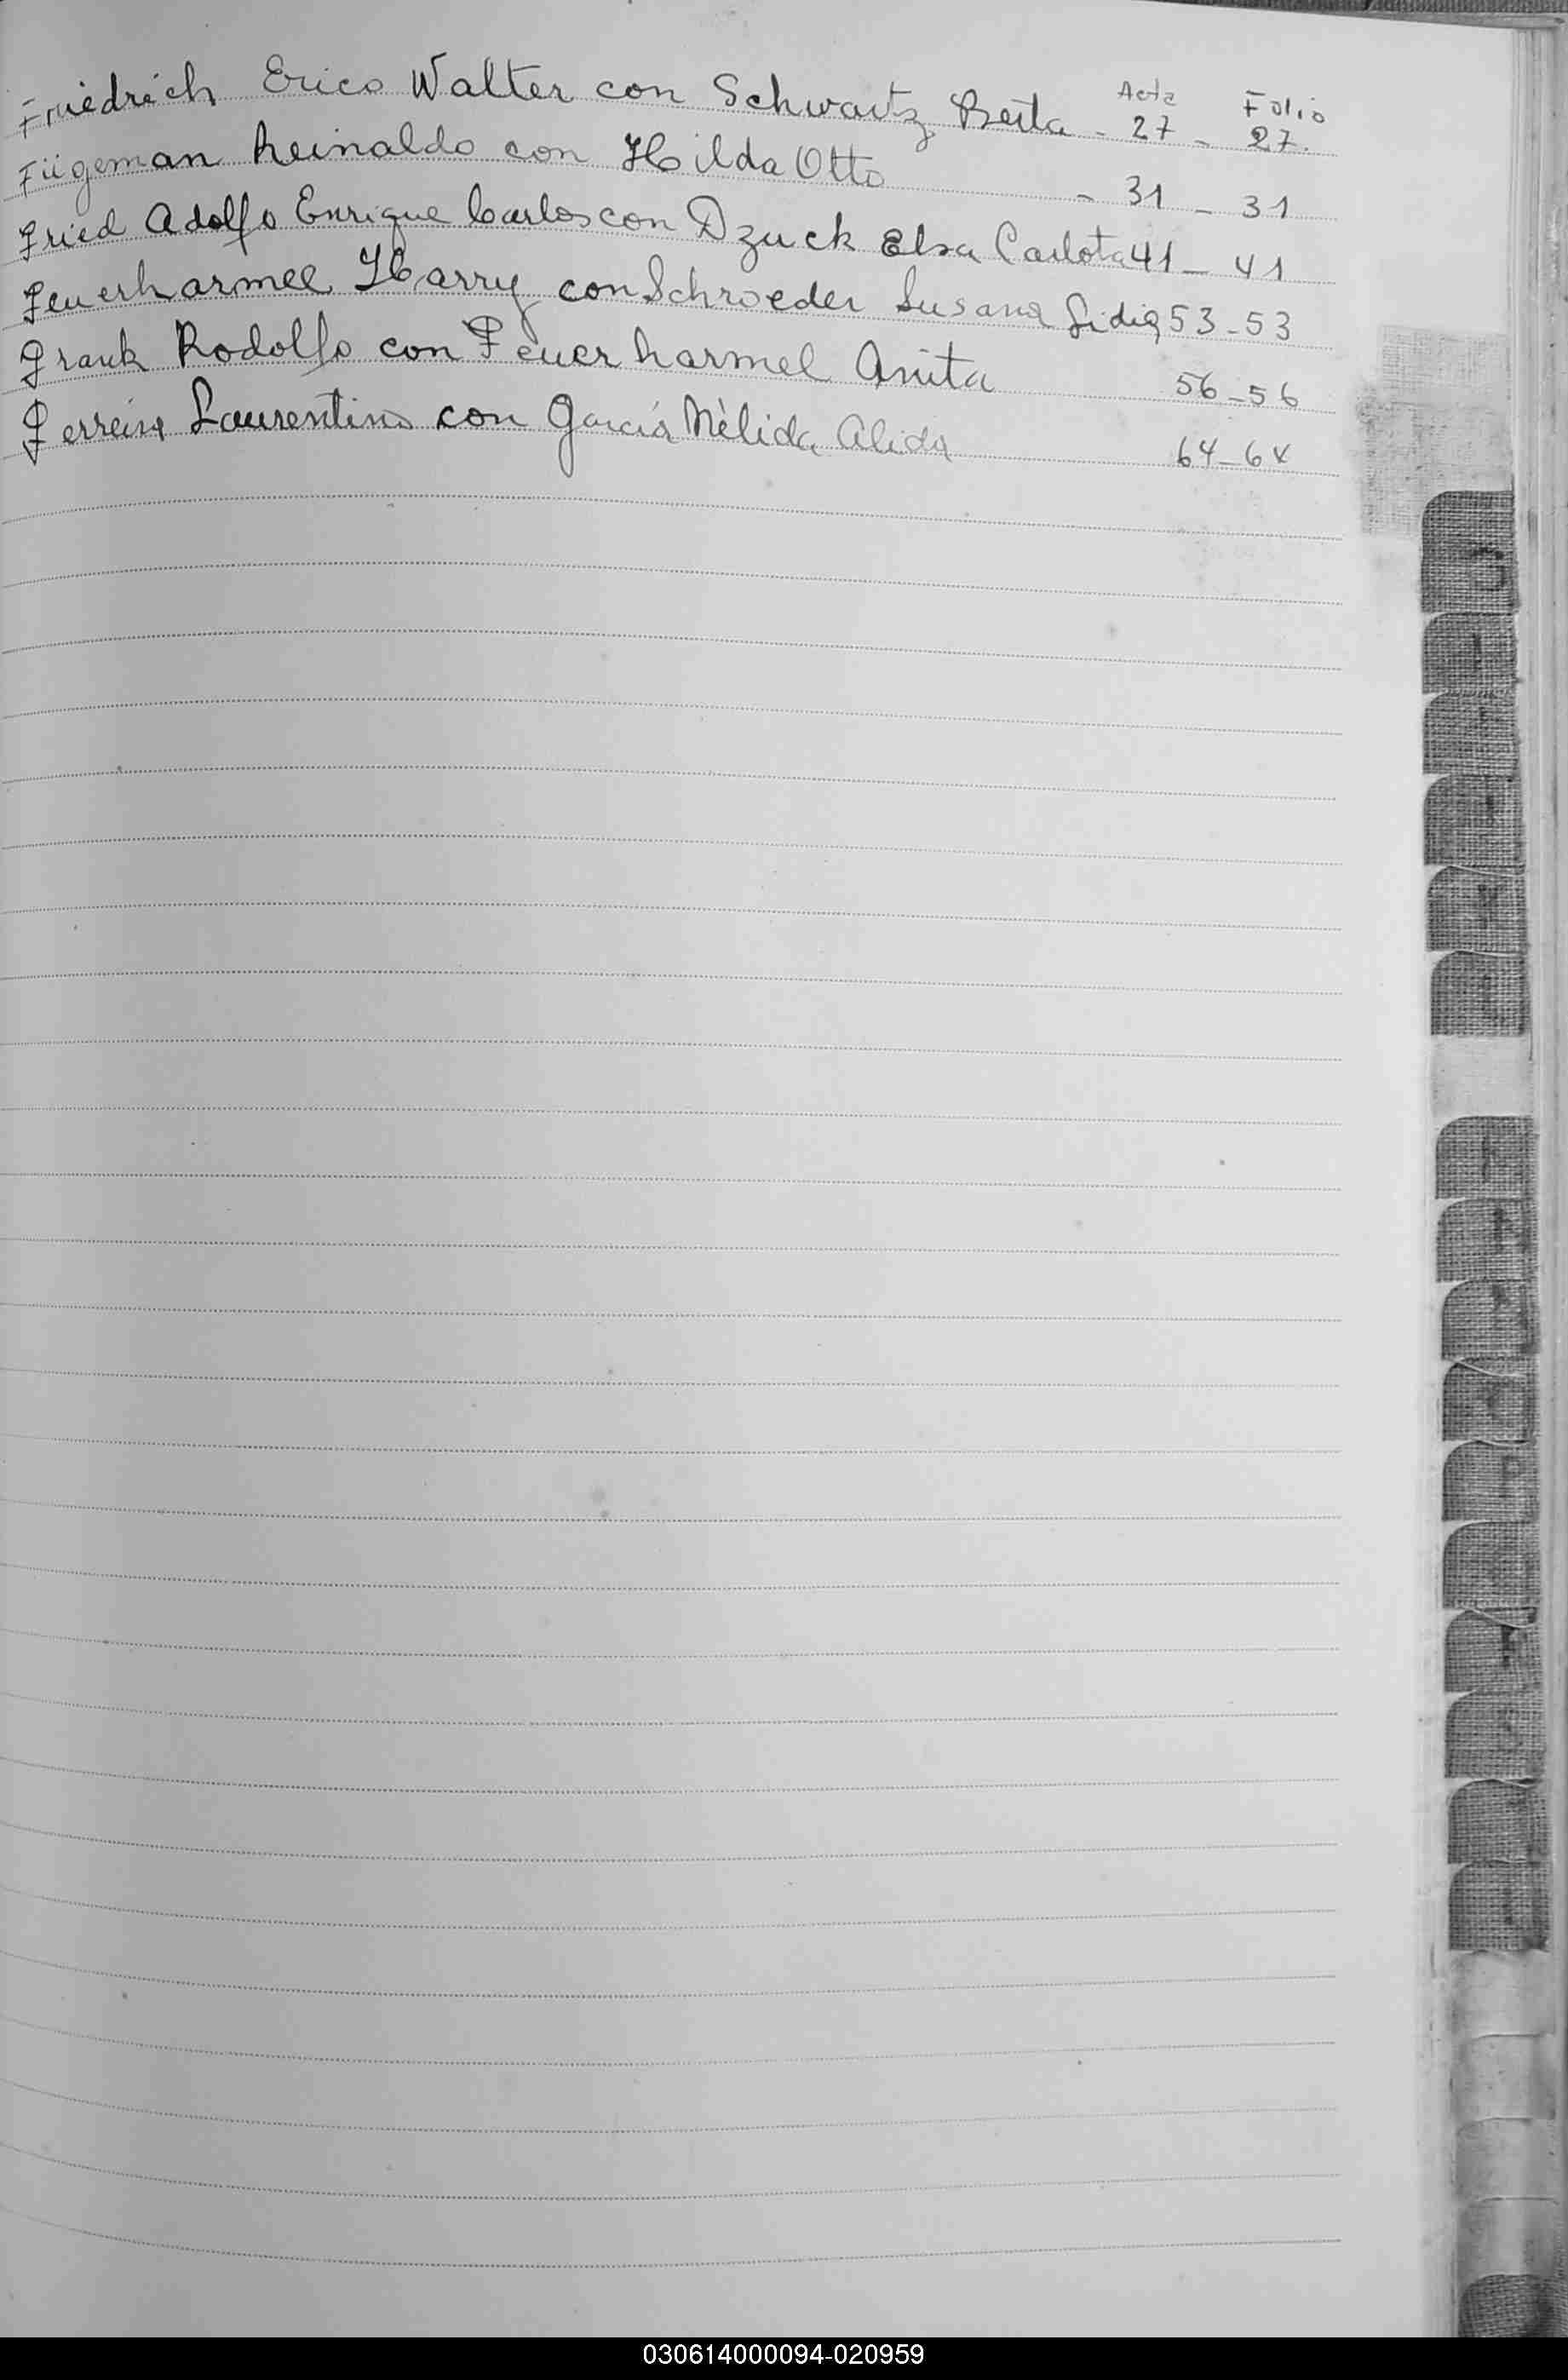 Acta Folio
Friedrich Erico Walter con Schwartz Berta - 27 - 27.
Fügeman Reinaldo con Hilda Otto - 31 - 31
Fried Adolfo Enrique Carlos con Dzuck Elsa Carlota 41 - 41
Feuerharmel Harry con Schroeder Susana Lidia 53 - 53
Frank Rodolfo con Feuerharmel Anita 56 - 56
Ferreira Laurentino con García Nélida Alida 64 - 64
030614000094-020959